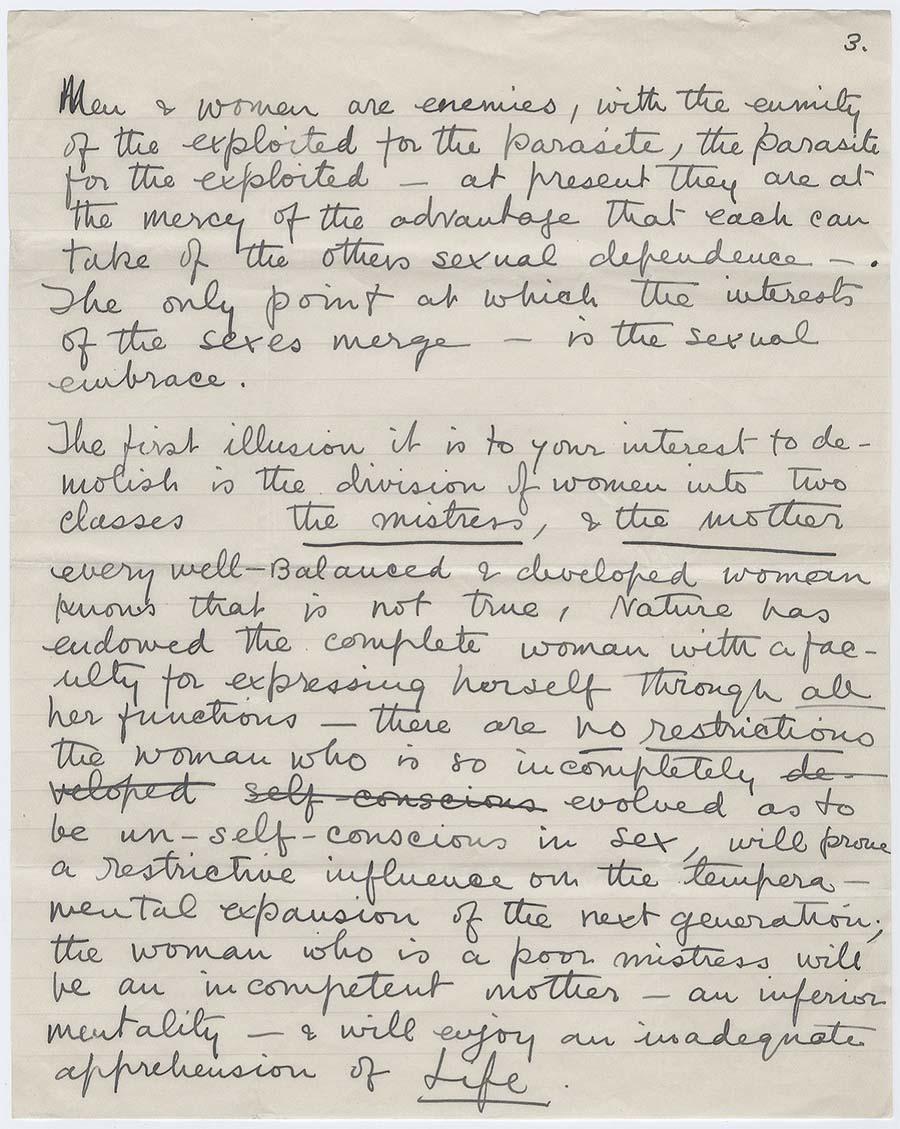 3.
Men & women are enemies, with the enmity
of the exploited for the parasite, the parasite
for the exploited — at present they are at
the mercy of the advantage that each can
take of the others sexual dependence — .
The only point at which the interests
of the sexes merge — is the sexual
embrace.
The first illusion it is to your interest to de-
molish is the division of women into two
classes the mistress, & the mother
every well-Balanced & developed woman
knows that is not true, Nature has
endowed the complete woman with a fac-
ulty for expressing herself through all
her functions — there are no restrictions
the woman who is so incompletely de-
veloped self-conscious evolved as to
be un-self-conscious in sex, will prove
a restrictive influence on the tempera-
mental expansion of the next generation;
the woman who is a poor mistress will
be an incompetent mother — an inferior
mentality — & will enjoy an inadequate
apprehension of Life.